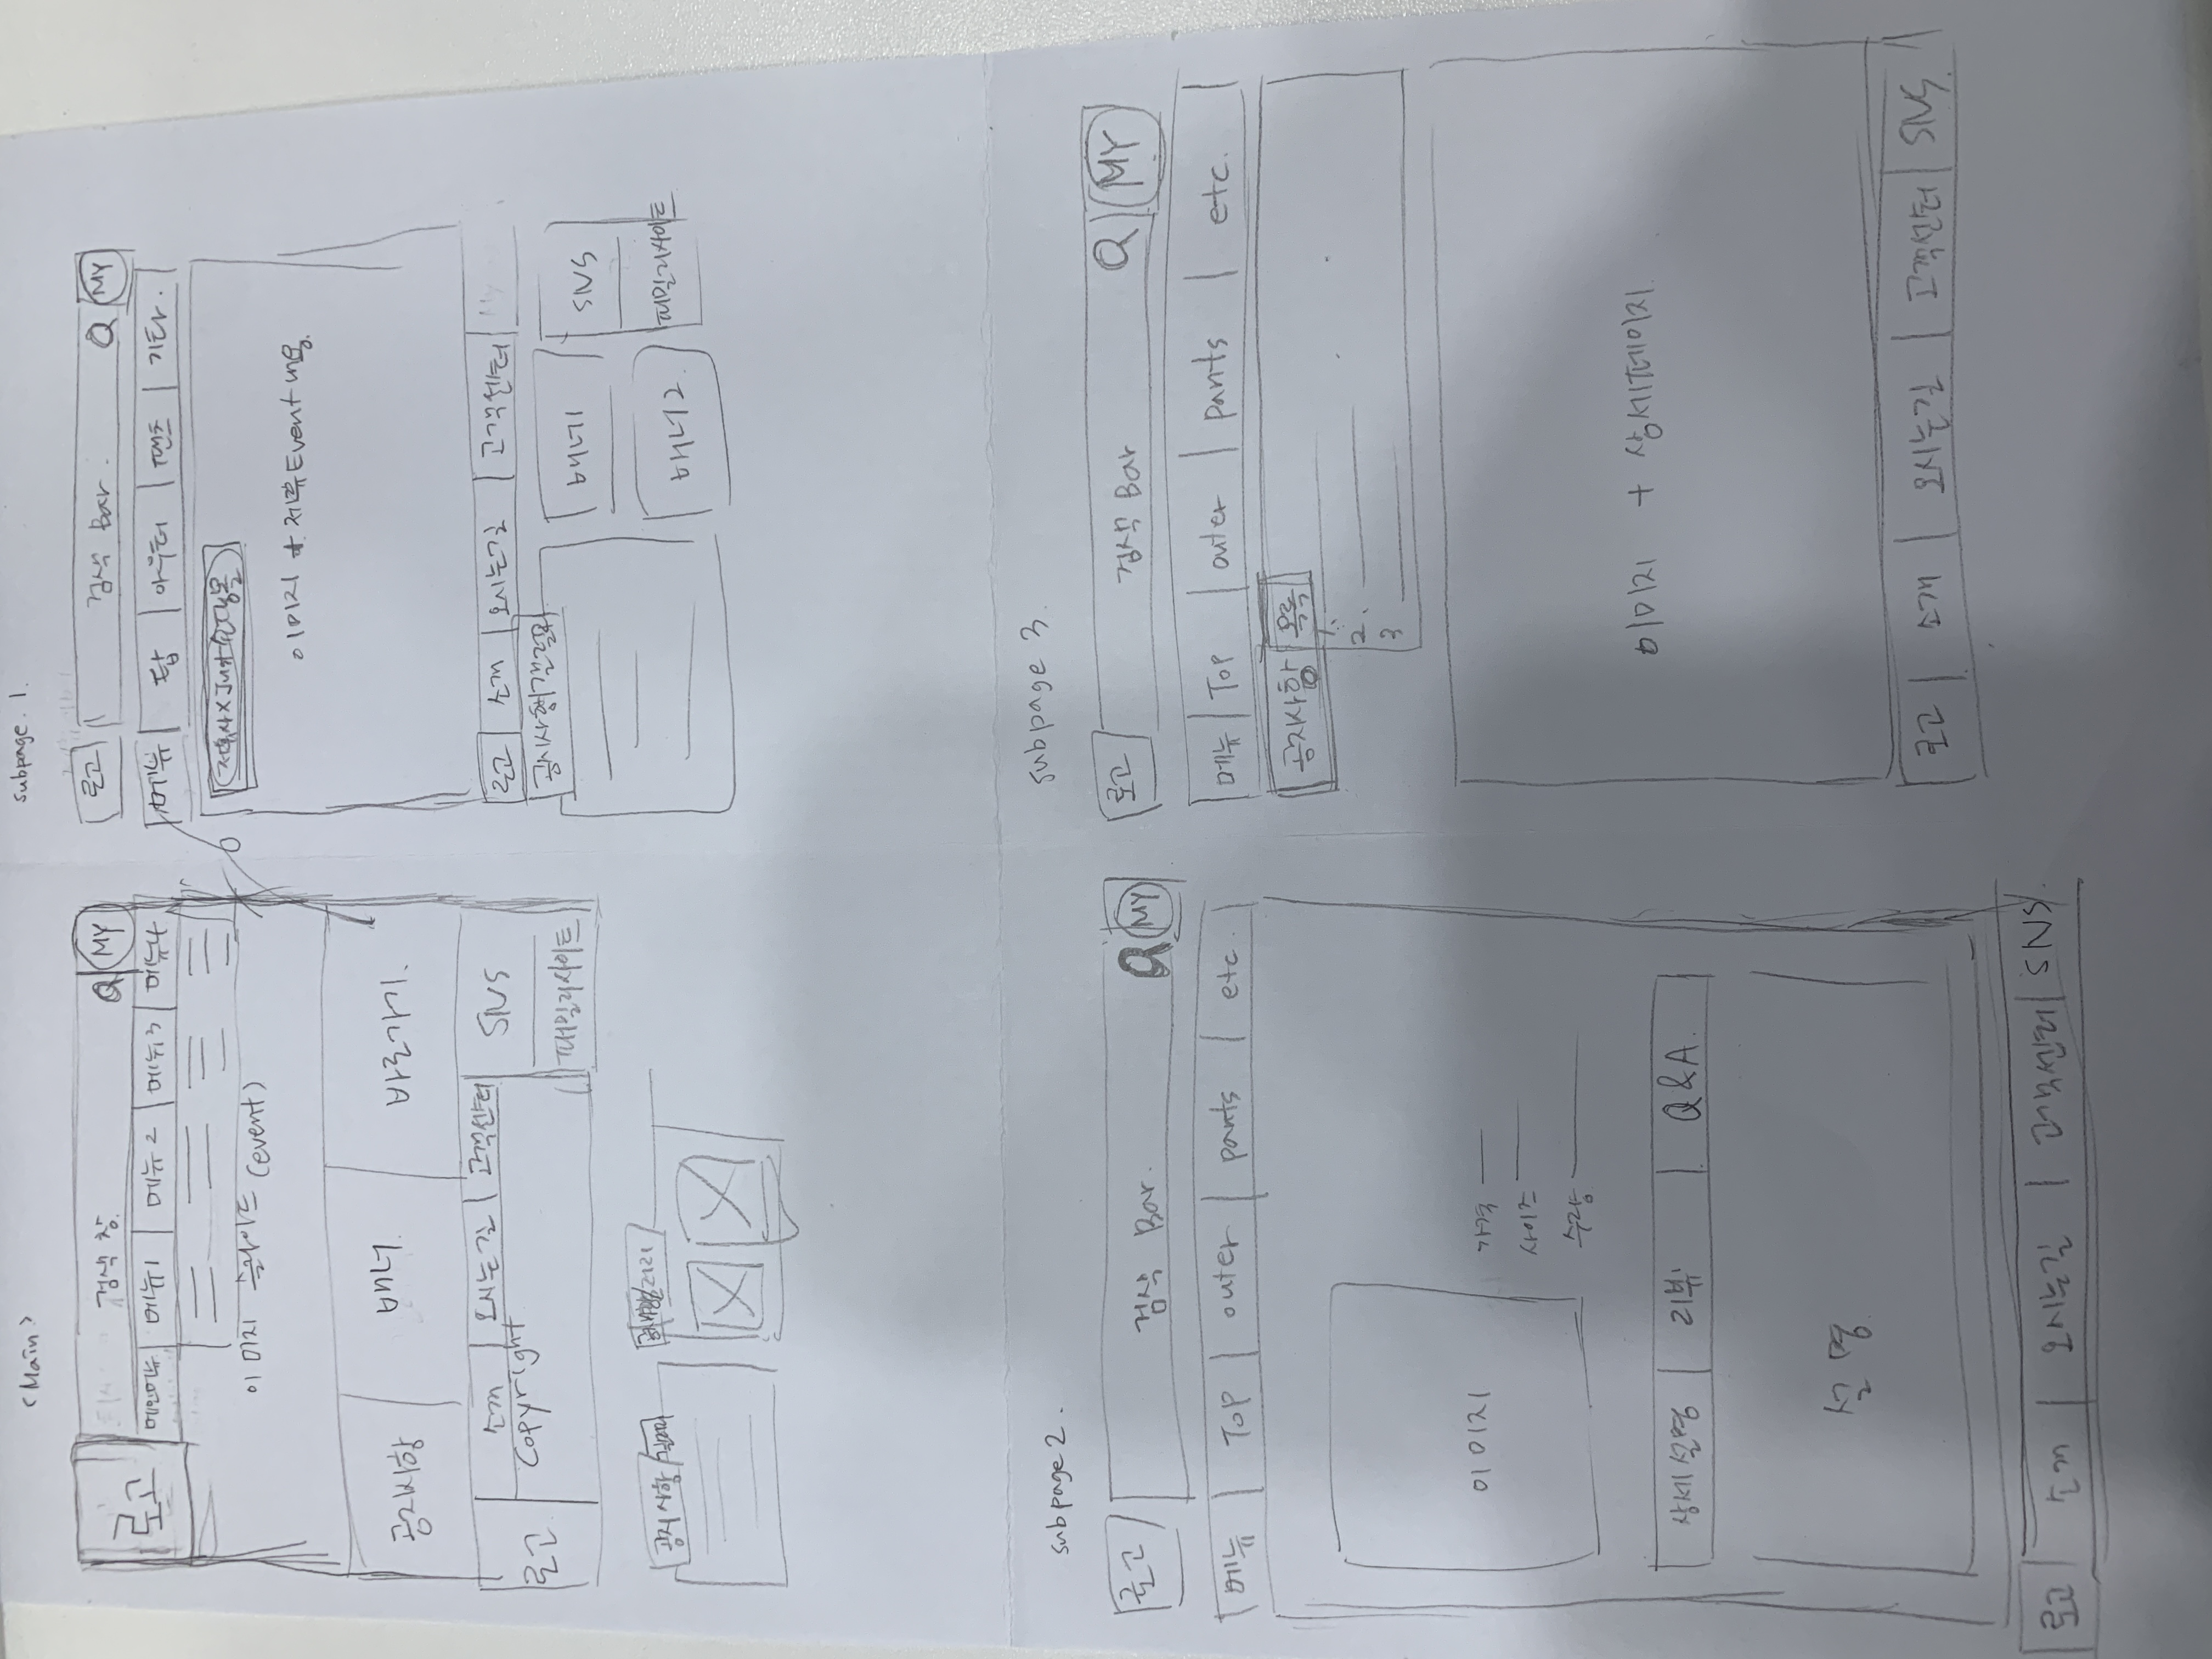 <Main>
로고
검색 창 Q MY
메인메뉴 메뉴1 메뉴2 메뉴3 메뉴4
이미지 슬라이드 (event)
공지사항 배너 바로가기.
로고 소개 오시는길 고객센터 SNS
Copyright
패밀리사이트
공지사항 갤러리
subpage. 1.
로고 검색 Bar. Q MY
메뉴 탑 아우터 팬츠 기타.
이미지 + 제휴Event 내용.
로고 소개 오시는길 고객센터
공지사항 갤러리
배너1 SNS
배너2. 패밀리사이트
subpage 2.
로고 검색 Bar. Q MY
메뉴 TOP outer pants etc.
이미지
가격
사이즈
수량
상세설명 리뷰 Q&A.
설명
로고 소개 오시는길 고객센터 SNS.
subpage 3.
로고 검색 Bar Q MY
메뉴 TOP outer pants etc.
공지사항 목록
1.
2.
3
이미지 + 상세페이지.
로고 소개 오시는길 고객센터 SNS.